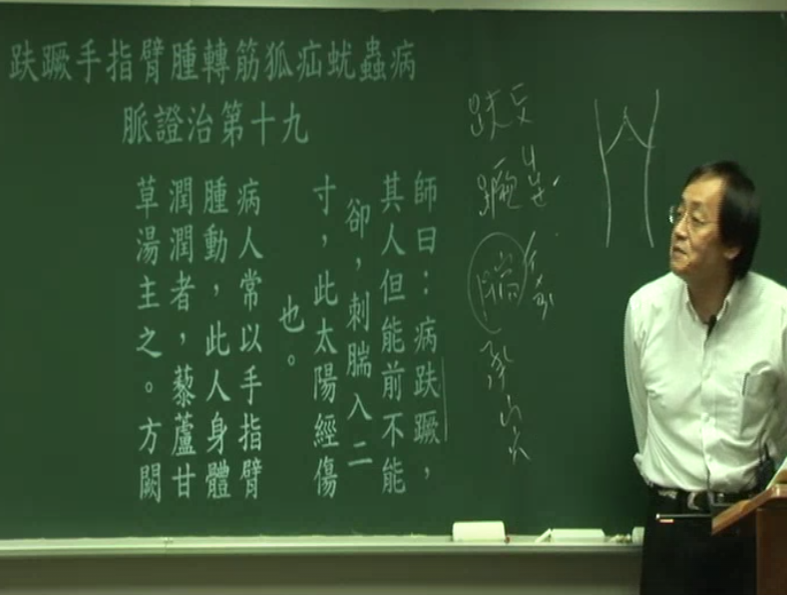 趺蹶手指臂腫轉筋狐疝蚘蟲病
脈證治第十九
師曰：病趺蹶，
其人但能前不能
卻，刺腨入二
寸，此太陽經傷
也。
病人常以手指臂
腫動，此人身體
潤潤者，藜蘆甘
草湯主之。方闕
趺
蹶
腨
承山穴